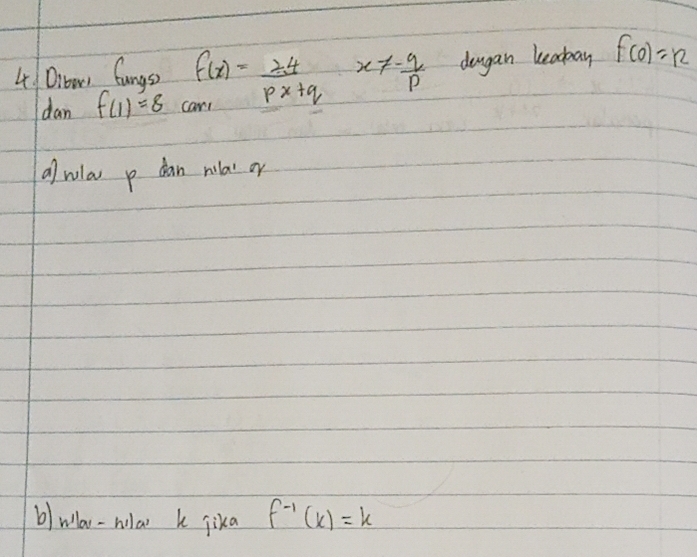 4. Diberi fungsi f(x) = 24/(px+q) x ≠ -q/p dengan keadaan f(0)=12
dan f(1)=8 cari
a) nilai p dan nilai q
b) nilai-nilai k jika f⁻¹(k) = k